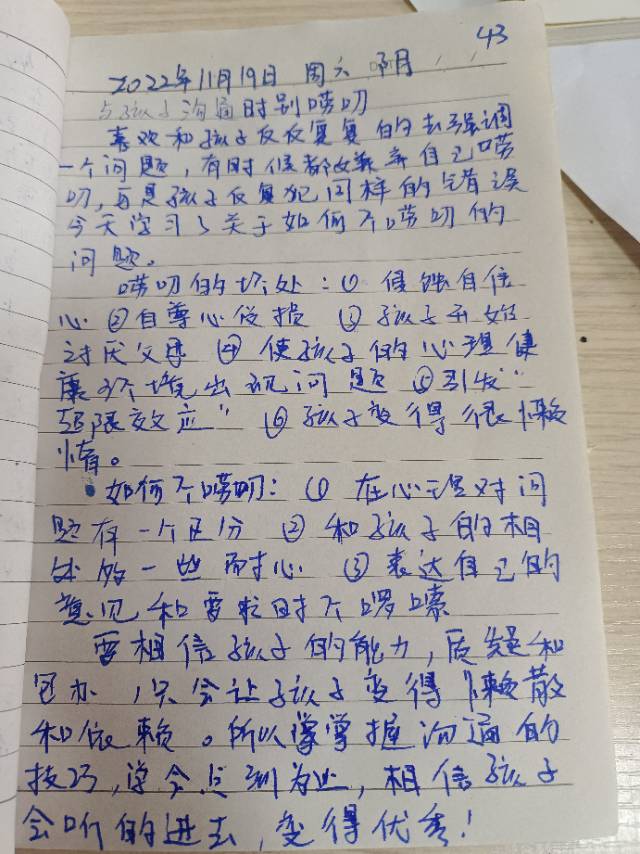 43
2022年11月19日 周六 阴
与孩子沟通时别唠叨
喜欢和孩子反反复复的去强调
一个问题，有时候都嫌弃自己唠
叨，可是孩子反复犯同样的错误
今天学习了关于如何不唠叨的
问题。
唠叨的坏处：① 侵蚀自信
心 ②自尊心受损 ③ 孩子开始
讨厌父母 ④ 使孩子的心理健
康环境出现问题 ⑤引发“
超限效应” ⑥孩子变得很懒
惰。
如何不唠叨：① 在心理对问
题有一个区分 ② 和孩子的相
处多一些耐心 ③表达自己的
意见和要求时不啰嗦
要相信孩子的能力，质疑和
包办，只会让孩子变得懒散
和依赖。所以掌握沟通的
技巧，学会点到为止，相信孩子
会听的进去，变得优秀！